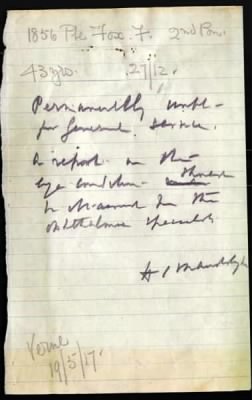 1856 Pte Fox F. 2nd Pon.
43 yrs. 27/12.
Permanently unfit
for General Service.
A report on the
eye condition should
be obtained from the
Ophthalmic Specialist
Verne
19/5/17.